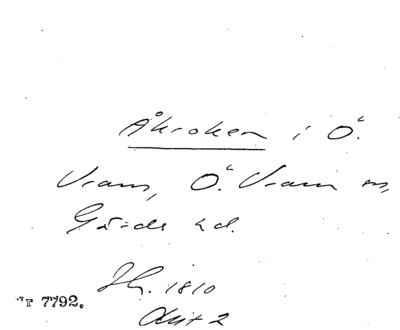 Åkroken i Ö.
Vram, Ö. Vram sn,
Gärds hd.
1810
Akt 2
7792.